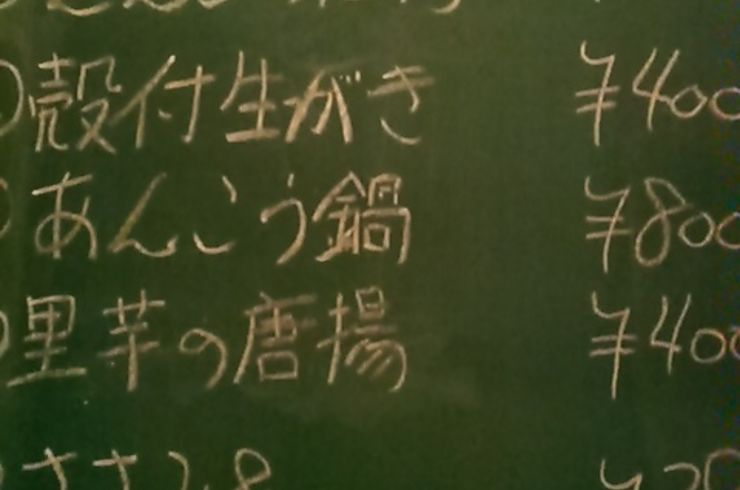 殻付生がき ¥400
あんこう鍋 ¥800
里芋の唐揚 ¥400